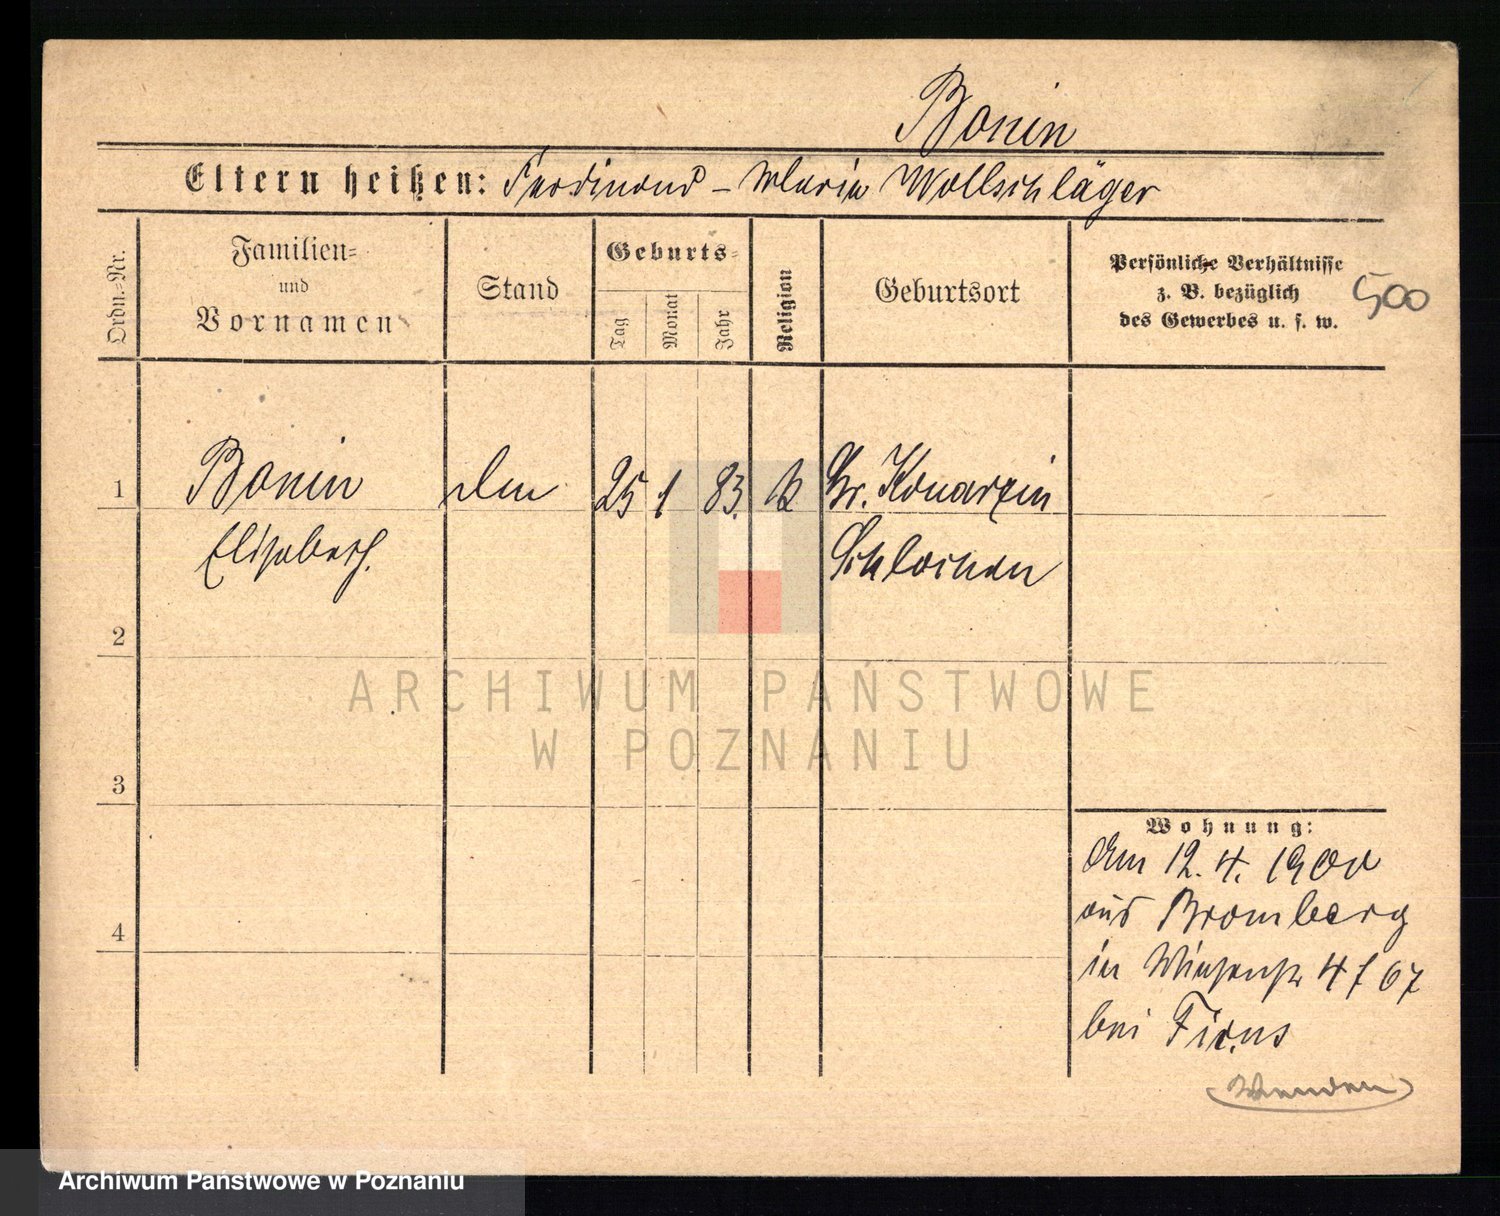 Bonin
Eltern heißen: Ferdinand - Maria Wollschläger
Ordn.-Nr.
Familien-
und
Vornamen
Stand
Geburts-
Tag
Monat
Jahr
Religion
Geburtsort
Persönliche Verhältnisse
z. B. bezüglich
des Gewerbes u. s. w.
500
1 Bonin 25 1 83. k Gr. Konarzin
Elisabeth. Schlochau
2
3
4
Wohnung:
Am 12. 4. 1900
aus Bromberg
in Wiesenstr 4 f 67
bei
Wenden
ARCHIWUM PAŃSTWOWE
W POZNANIU
Archiwum Państwowe w Poznaniu